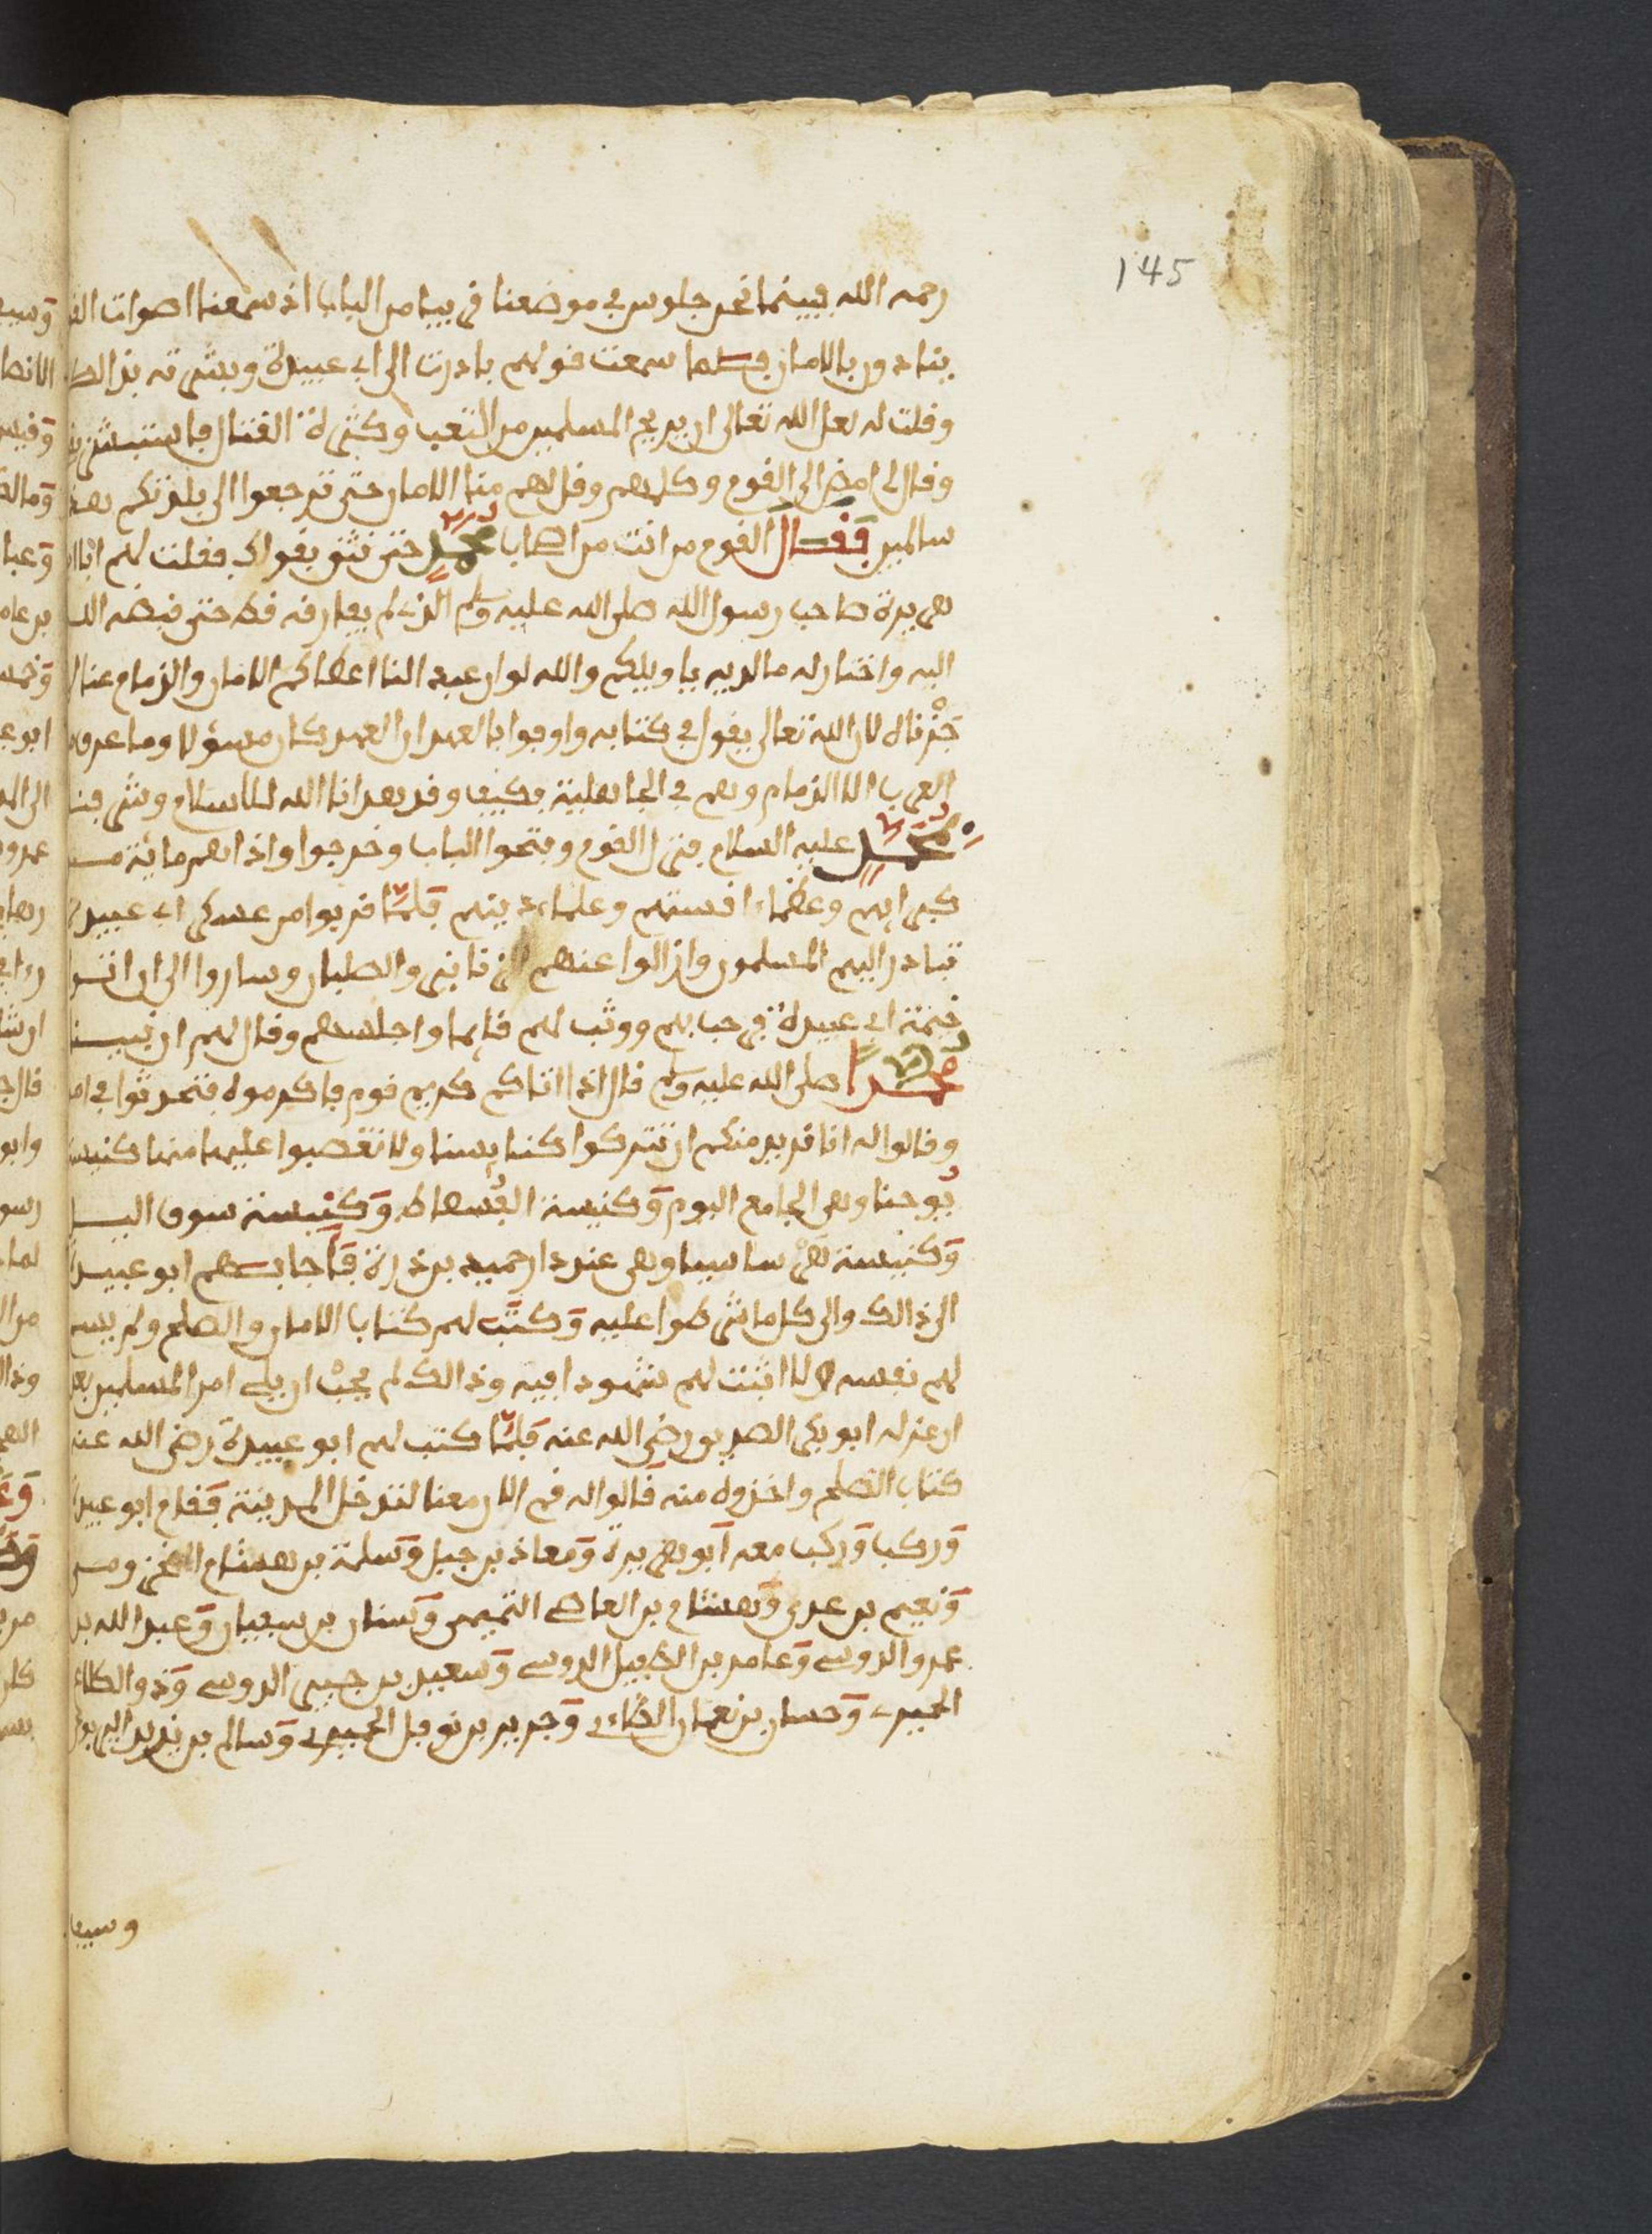 145
رحمه الله فبينما نحن جلوس في موضعنا قريبا من الباب اذ سمعنا اصوات الق
ينادون بالامان فلما سمعت قولهم بادرت الى ابي عبيدة وبشرته بذالك
وقلت له لعل الله تعالى ان يريح المسلمين من التعب وكثرة القتال فاستبشر
وقال لي امض الى القوم وكلمهم وقل لهم منا الامان حتى ترجعوا الى بلدتكم
سالمين فقال القوم من انت من اصحاب محمد حتى نثق بقولك فقلت لهم انا ابا
هريرة صاحب رسول الله صلى الله عليه وسلم الذي لم يفارقه قط حتى قبضه الله
اليه واختار له ما لديه يا ويلكم والله لو ان عبيد النا اعطاكم الامان والذمام عنا
جزناه لان الله تعالى يقول في كتابه واوفوا بالعهد ان العهد كان مسؤلا وما عرف
العرب الا الذمام وهم في الجاهلية فكيف وقد هدانا الله للاسلام وشرفنا
بمحمد عليه السلام فنزل القوم وفتحوا الباب وخرجوا واذا هم مائة من
كبرايهم وعظماء اقستهم وعلماء دينهم فلما قربوا من عسكر ابي عبيدة
تبادر اليهم المسلمون وازالوا عنهم الزنانير والصلبان وساروا الى ان اتوا
خيمة ابي عبيدة فرحب بهم ووثب لهم قايما واجلسهم وقال لهم ان نبينا
محمدا صلى الله عليه وسلم قال اذا اتاكم كريم قوم فاكرموه فتحدثوا في امر
وقالوا له انا نريد منكم ان تتركوا كنايسنا ولا تغصبوا عليها منها كنيسة
يوحنا وهي الجامع اليوم وكنيسة الفسطاط وكنيسة سوق اليل
وكنيسة هي ساسيا وهي عند دار حميد بن ذرة فاجابهم ابو عبيدة
الى ذالك والى كل ما شرطوا عليه وكتب لهم كتابا الامان والصلح ولم يسم
لهم نفسه ولا اثبت لهم شهودا فيه وذالك لم يحب ان يلي امر المسلمين بعد
ان عزله ابو بكر الصديق رضي الله عنه فلما كتب لهم ابو عبيدة رضي الله عنه
كتاب الصلح واخذوه منه قالوا له قم الان معنا لتدخل المدينة فقام ابو عبيدة
وركب وركب معه ابو هريرة ومعاذ بن جبل وسلمة بن هشام المخزومي
ونعيم بن عدي وهشام بن العاصي التميمي وسنان بن سفيان وعبد الله بن
عمرو الدوسي وعامر بن الطبيل الدوسي وسعيد بن جبير الدوسي وذو الكلاع
الحميري وحسان بن نعمان الطاءي وجرير بن نوفل الحميري وسالم بن يزيد اليربوعي
وسيف